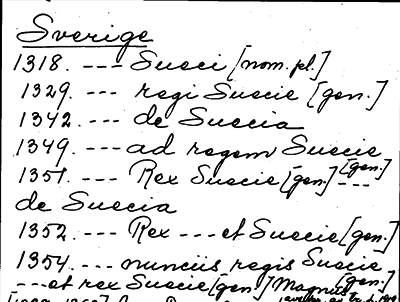 Sverige
1318. --- Sueci [nom. pl.]
1329. --- regi Suecie [gen.]
1342. --- de Suecia
1349. --- ad regem Suecie [gen.]
1351. --- Rex Suecie [gen.] ---
de Suecia
1352. --- Rex --- et Suecie [gen.]
1354. --- nunciis regis Suecie [gen.]
--- et rex Suecie [gen.] Magnus